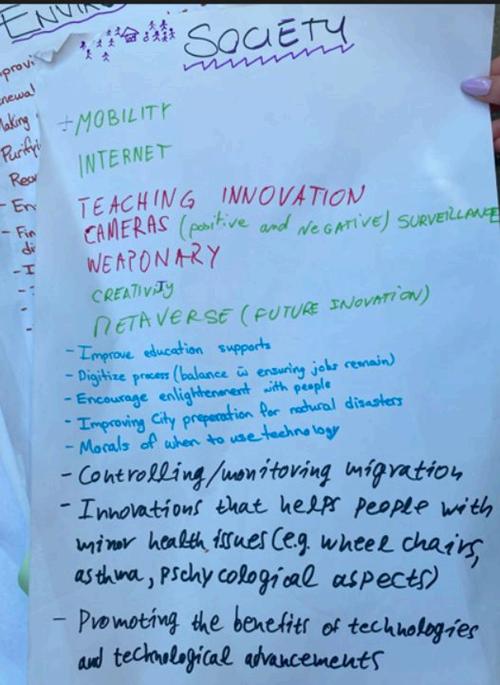 SOCIETY
+MOBILITY
INTERNET
TEACHING INNOVATION
CAMERAS (positive and NEGATIVE) SURVEILLANCE
WEAPONARY
CREATIVITY
METAVERSE (FUTURE INOVATION)
- Improve education supports
- Digitize process (balance is ensuring jobs remain)
- Encourage enlightenment with people
- Improving City preparation for natural disasters
- Morals of when to use technology
- Controlling/monitoring migration
- Innovations that helps people with
minor health issues (e.g. wheel chairs,
asthma, pschycological aspects)
- Promoting the benefits of technologies
and technological advancements